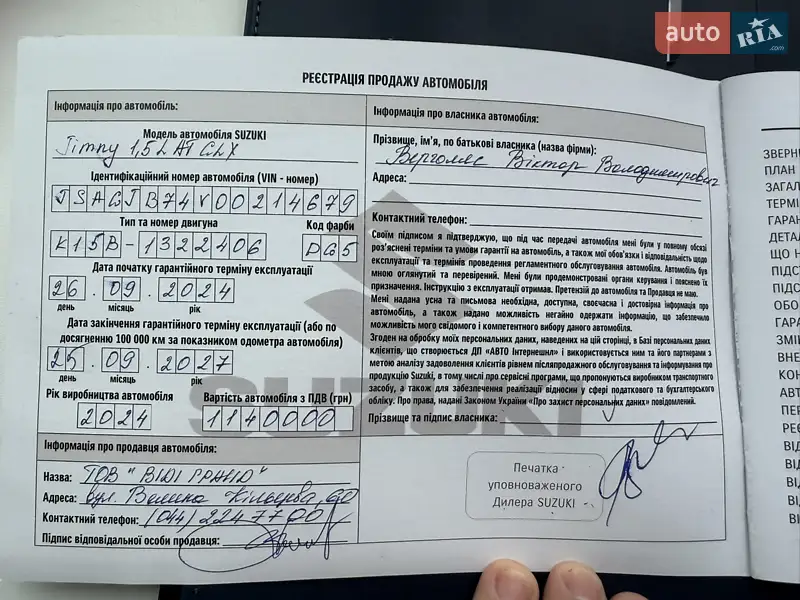 auto RIA.com
РЕЄСТРАЦІЯ ПРОДАЖУ АВТОМОБІЛЯ
Інформація про автомобіль:
Модель автомобіля SUZUKI
Jimny 1,5L AT GLX
Ідентифікаційний номер автомобіля (VIN - номер)
JSAGJB74V00214679
Тип та номер двигуна
K15B-1322406
Код фарби
DG5
Дата початку гарантійного терміну експлуатації
26.09.2024
день місяць рік
Дата закінчення гарантійного терміну експлуатації (або по
досягненню 100 000 км за показником одометра автомобіля)
25.09.2027
день місяць рік
Рік виробництва автомобіля
2024
Вартість автомобіля з ПДВ (грн)
1140000
Інформація про продавця автомобіля:
Назва: ТОВ "ВІДІ ГРАНД"
Адреса: вул. Велика Кільцева, 60
Контактний телефон: (044) 224 77 00
Підпис відповідальної особи продавця:
Інформація про власника автомобіля:
Прізвище, ім'я, по батькові власника (назва фірми):
Віктор Володимирович
Адреса:
Контактний телефон:
Своїм підписом я підтверджую, що під час передачі автомобіля мені були у повному обсязі
роз'яснені терміни та умови гарантії на автомобіль, а також мої обов'язки і відповідальність щодо
експлуатації та термінів проведення регламентного обслуговування автомобіля. Автомобіль був
мною оглянутий та перевірений. Мені були продемонстровані органи керування і пояснено їх
призначення. Інструкцію з експлуатації отримав. Претензій до автомобіля та Продавця не маю.
Мені надана усна та письмова необхідна, доступна, своєчасна і достовірна інформація про
автомобіль, а також надано можливість негайно одержати інформацію, що забезпечило
можливість мого свідомого і компетентного вибору даного автомобіля.
Згоден на обробку моїх персональних даних, наведених на цій сторінці, в Базі персональних даних
клієнтів, що створюється ДП «АВТО Інтернешнл» і використовується ним та його партнерами з
метою аналізу задоволення клієнтів рівнем післяпродажного обслуговування та інформування про
продукцію Suzuki, в тому числі про сервісні програми, що пропонуються виробником транспортного
засобу, а також для забезпечення реалізації відносин у сфері податкового та бухгалтерського
обліку. Про права, надані Законом України «Про захист персональних даних» повідомлений.
Прізвище та підпис власника:
Печатка
уповноваженого
Дилера SUZUKI
SUZUKI
ЗВЕРН
ПЛАН
ЗАГАЛ
ТЕРМІ
ГАРАН
ДЕТАЛ
ЩО Н
ПІДСТ
ПІДСТ
ОБО
ГАРА
ЗМІН
ВНЕ
КОН
АВТ
ПЕР
РЕЄ
ВІД
ВІД
ВІД
ВІД
ВІ